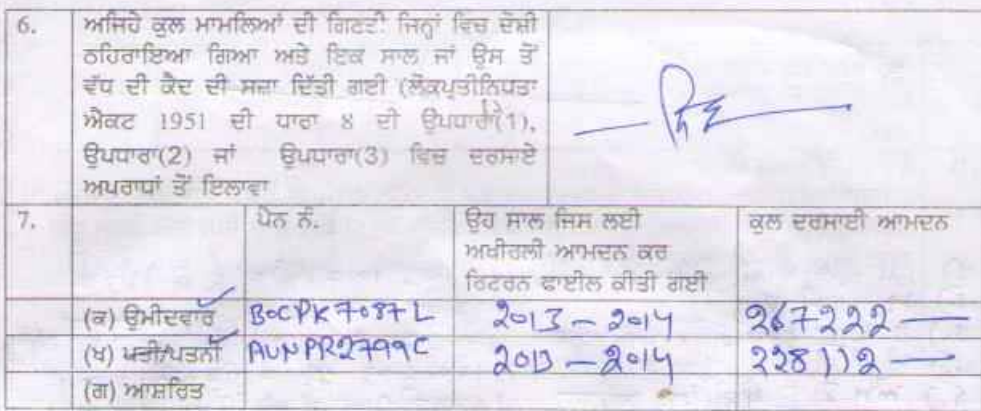 6. ਅਜਿਹੇ ਕੁਲ ਮਾਮਲਿਆਂ ਦੀ ਗਿਣਤੀ ਜਿਨ੍ਹਾਂ ਵਿਚ ਦੋਸ਼ੀ
ਠਹਿਰਾਇਆ ਗਿਆ ਅਤੇ ਇਕ ਸਾਲ ਜਾਂ ਉਸ ਤੋਂ
ਵੱਧ ਦੀ ਕੈਦ ਦੀ ਸਜ਼ਾ ਦਿੱਤੀ ਗਈ (ਲੋਕਪ੍ਰਤੀਨਿਧਤਾ
ਐਕਟ 1951 ਦੀ ਧਾਰਾ 8 ਦੀ ਉਪਧਾਰਾ(1),
ਉਪਧਾਰਾ(2) ਜਾਂ ਉਪਧਾਰਾ(3) ਵਿਚ ਦਰਸਾਏ
ਅਪਰਾਧਾਂ ਤੋਂ ਇਲਾਵਾ
7. ਪੈਨ ਨੰ. ਉਹ ਸਾਲ ਜਿਸ ਲਈ ਕੁਲ ਦਰਸਾਈ ਆਮਦਨ
ਅਖੀਰਲੀ ਆਮਦਨ ਕਰ
ਰਿਟਰਨ ਫਾਈਲ ਕੀਤੀ ਗਈ
(ਕ) ਉਮੀਦਵਾਰ BOCPK7087L 2013-2014 267222
(ਖ) ਪਤੀ/ਪਤਨੀ AUNPR2799C 2013-2014 228112
(ਗ) ਆਸ਼ਰਿਤ